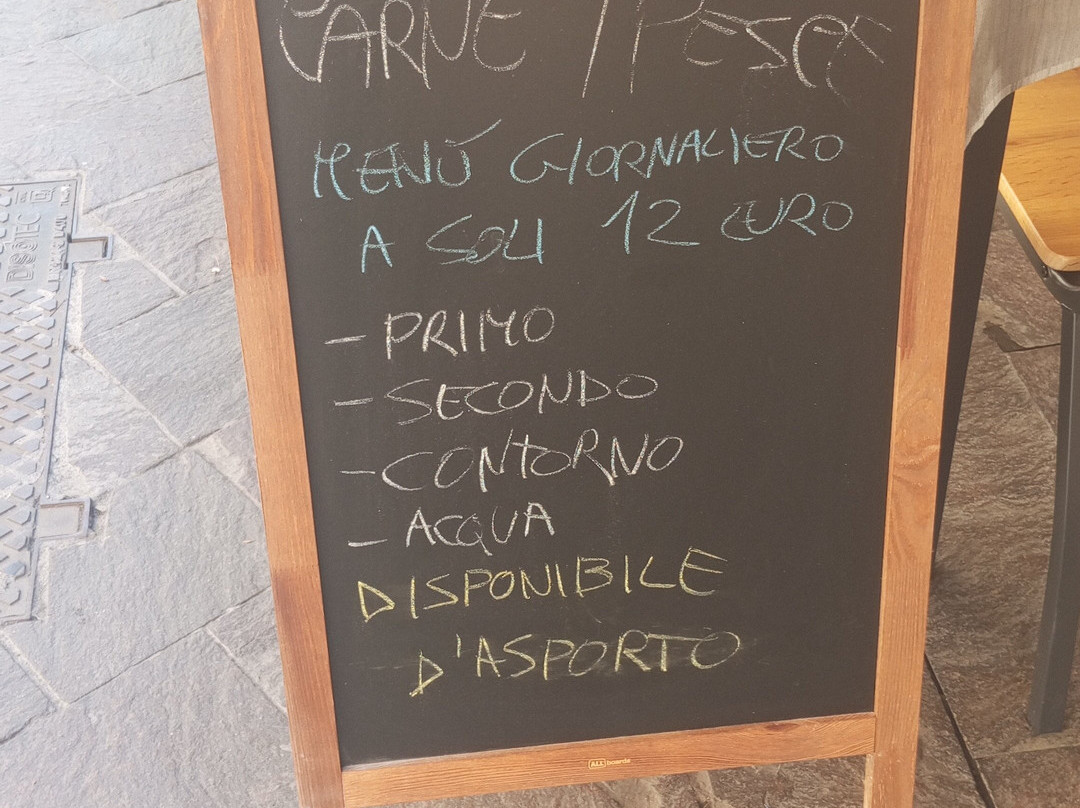 CARNE / PESCE
MENÙ GIORNALIERO
A SOLI 12 EURO
- PRIMO
- SECONDO
- CONTORNO
- ACQUA
DISPONIBILE
D'ASPORTO
ALL boards
DISTEC